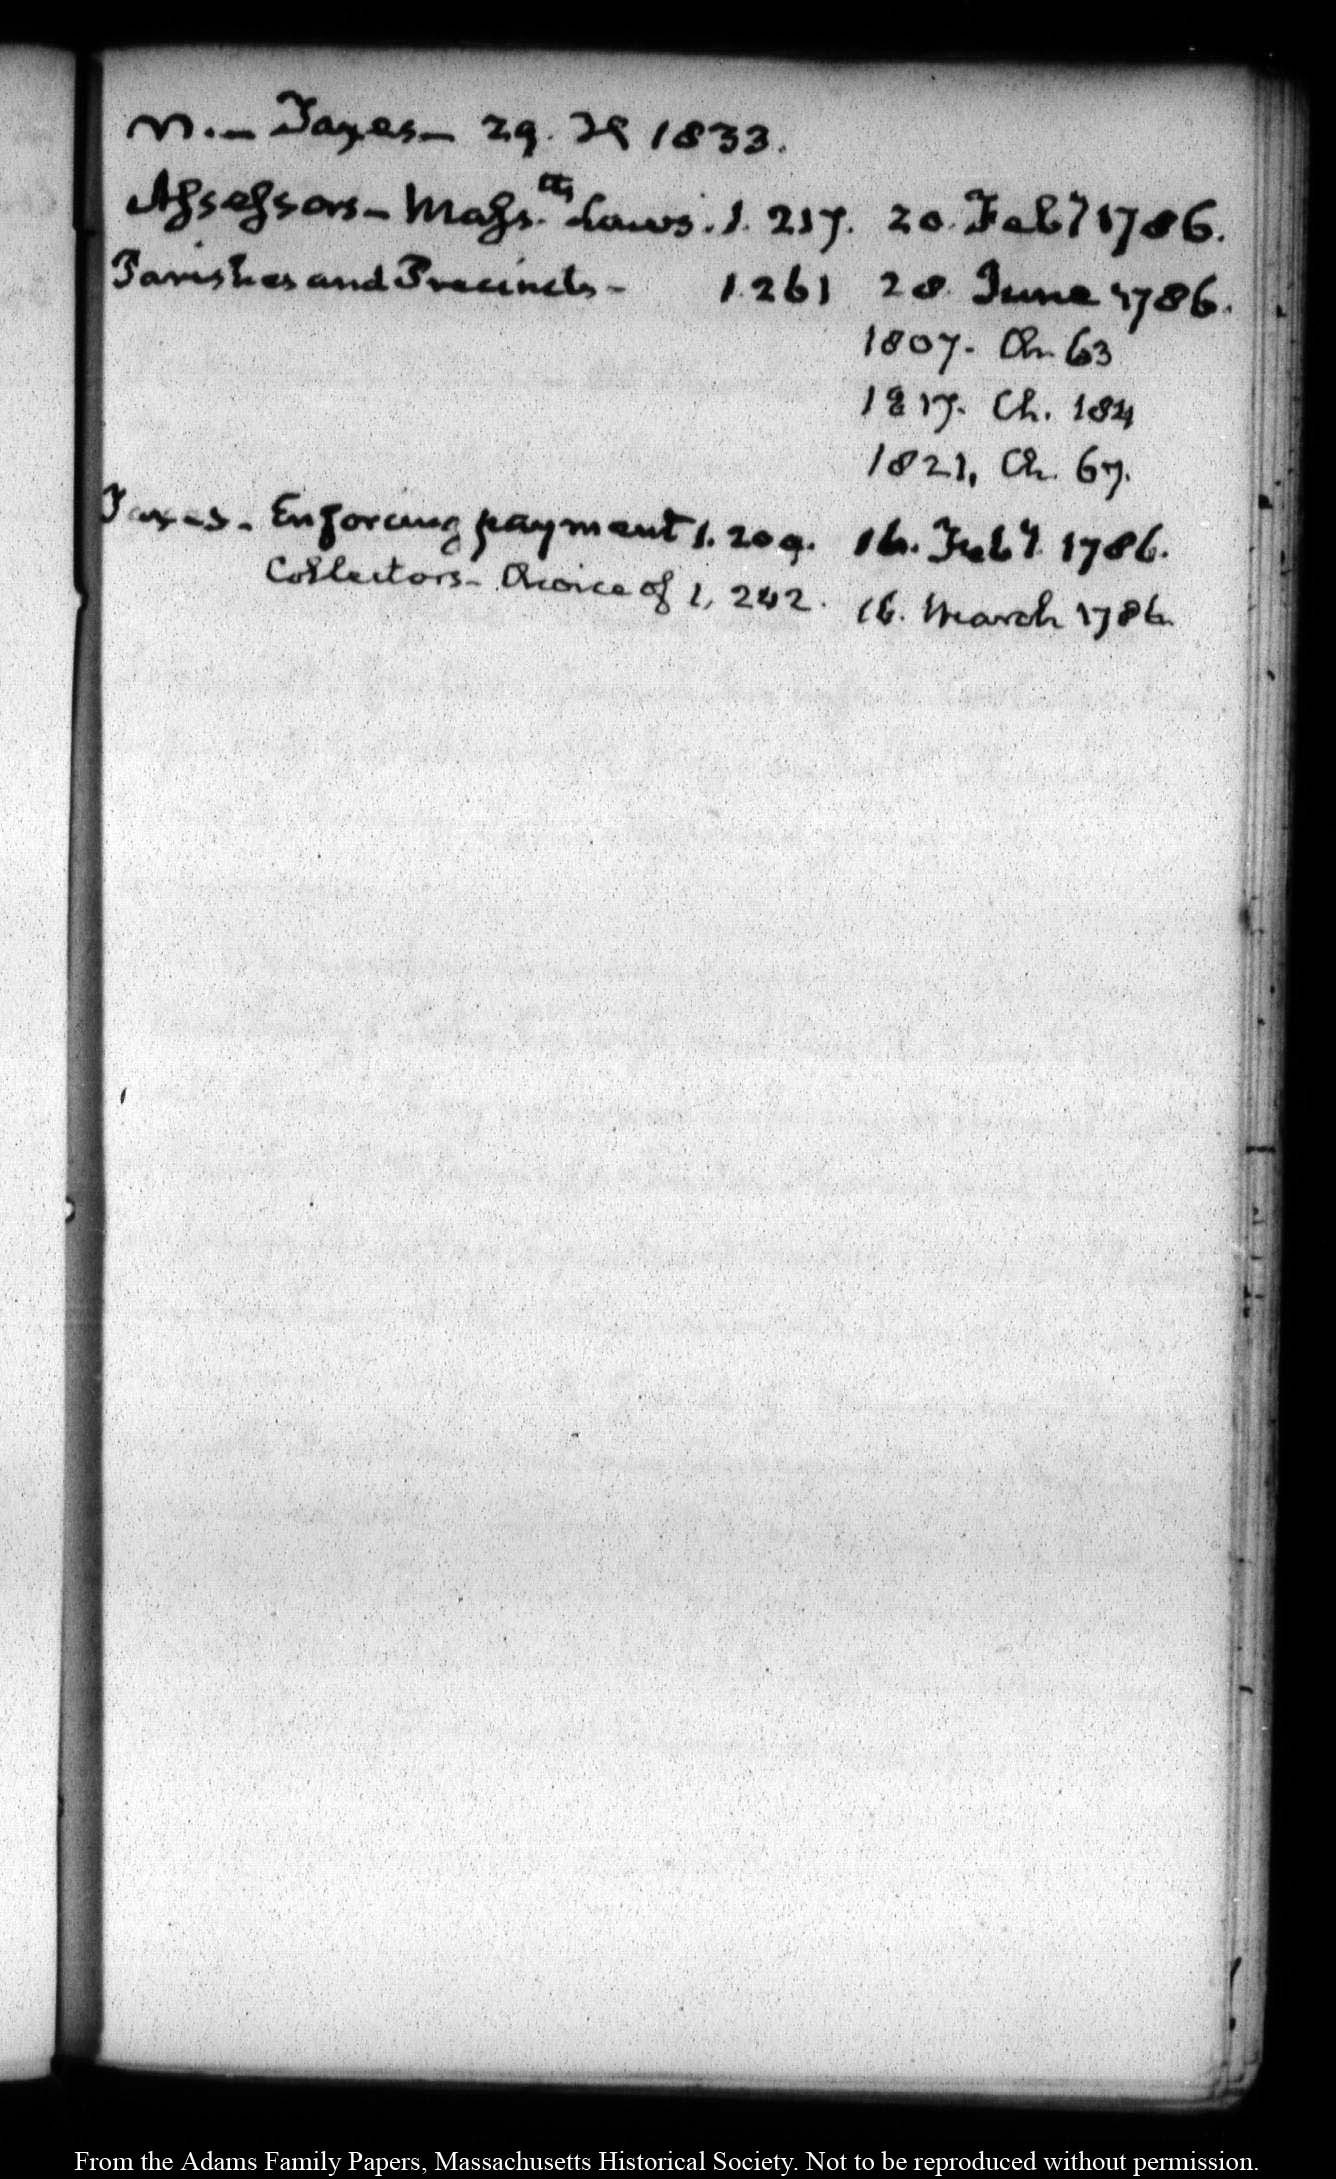 n.— Taxes— 29. IX 1833.
Assessors— Mass.ts Laws. 1. 217. 20. Feby 1786.
Parishes and Precincts— 1. 261 28. June 1786.
1807. Ch. 63
1817. Ch. 184
1821, Ch. 67.
Taxes. Enforcing payment 1. 209. 16. Feby. 1786.
Collectors— Choice of 1, 242. 16. March 1786.
From the Adams Family Papers, Massachusetts Historical Society. Not to be reproduced without permission.